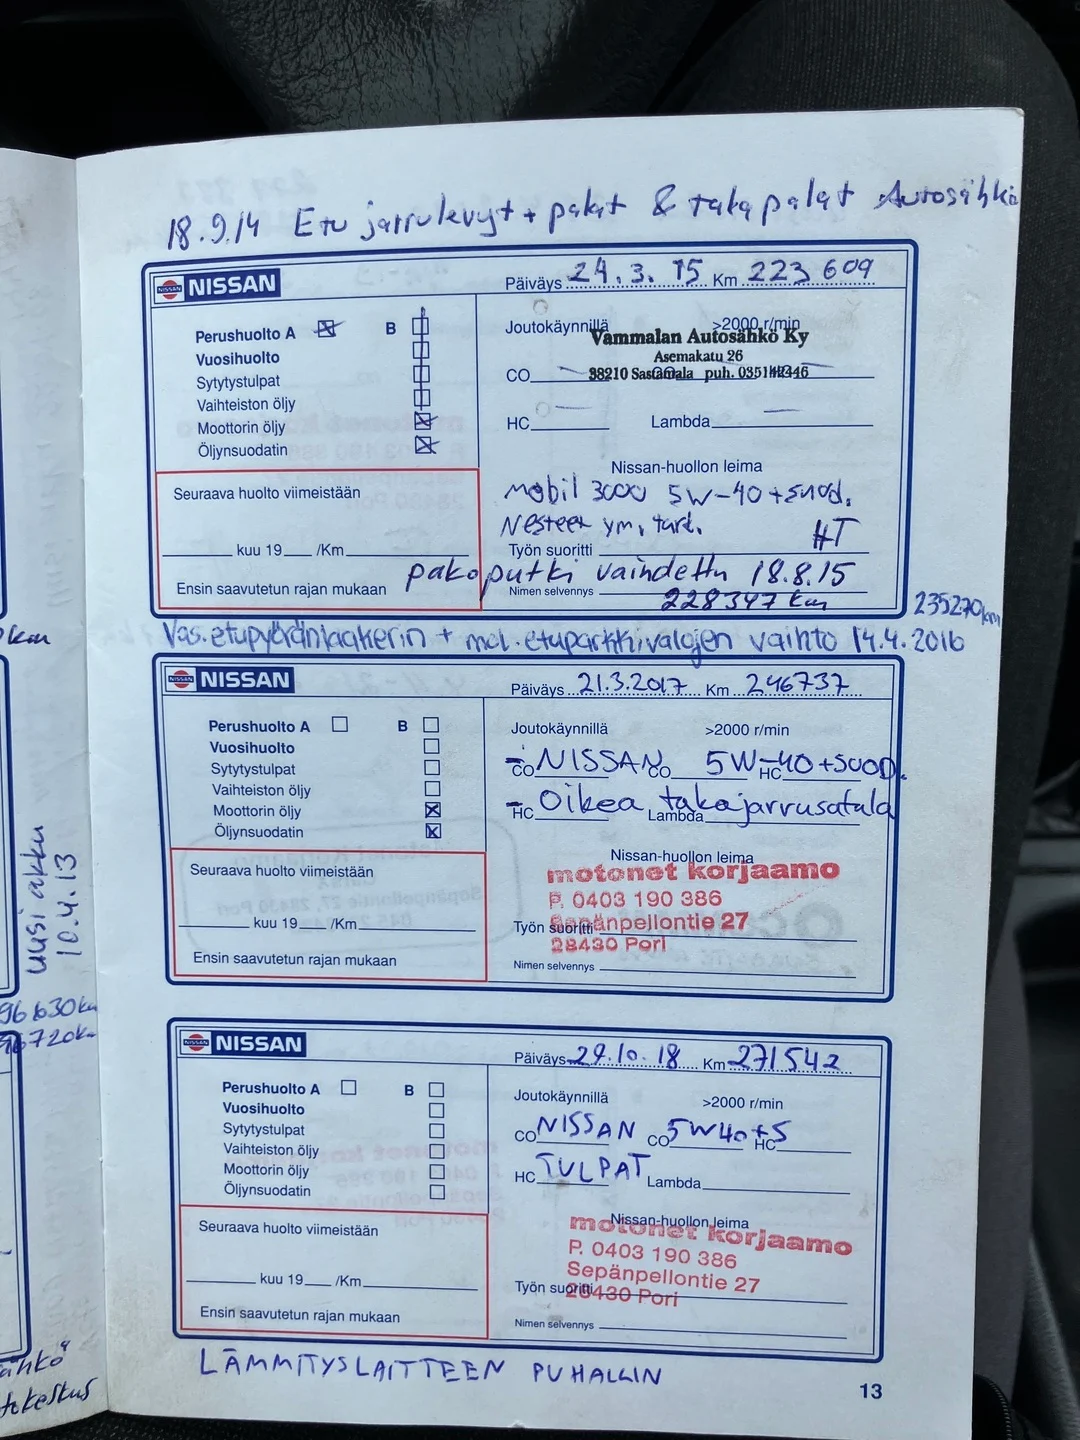 18.9.14 Etu jarrulevyt + palat & taka palat Autosähkö
NISSAN
Päiväys 24.3.15 Km 223 609
Perushuolto A B
Vuosihuolto
Sytytystulpat
Vaihteiston öljy
Moottorin öljy
Öljynsuodatin
Joutokäynnillä >2000 r/min
Vammalan Autosähkö Ky
Asemakatu 26
38210 Sastamala puh. 035142446
CO CO
HC Lambda
Nissan-huollon leima
Mobil 3000 5W-40 + suod.
Nesteet ym. tark.
HT
Työn suoritti
Seuraava huolto viimeistään
kuu 19 /Km
Ensin saavutetun rajan mukaan
pakoputki vaihdettu 18.8.15
Nimen selvennys
228347 km
235270km
Vas. etupyöränlaakerin + mol. etuparkkivalojen vaihto 14.4.2016
NISSAN
Päiväys 21.3.2017 Km 246737
Perushuolto A B
Vuosihuolto
Sytytystulpat
Vaihteiston öljy
Moottorin öljy
Öljynsuodatin
Joutokäynnillä >2000 r/min
CO CO HC
- NISSAN 5W-40 + SUOD.
HC Lambda
- Oikea takajarrusatula
Nissan-huollon leima
motonet korjaamo
P. 0403 190 386
Sepänpellontie 27
28430 Pori
Työn suoritti
Nimen selvennys
Seuraava huolto viimeistään
kuu 19 /Km
Ensin saavutetun rajan mukaan
NISSAN
Päiväys 29.10.18 Km 271542
Perushuolto A B
Vuosihuolto
Sytytystulpat
Vaihteiston öljy
Moottorin öljy
Öljynsuodatin
Joutokäynnillä >2000 r/min
CO CO HC
NISSAN 5W40+S
HC Lambda
TULPAT
Nissan-huollon leima
motonet korjaamo
P. 0403 190 386
Sepänpellontie 27
28430 Pori
Työn suoritti
Nimen selvennys
Seuraava huolto viimeistään
kuu 19 /Km
Ensin saavutetun rajan mukaan
LÄMMITYSLAITTEEN PUHALLIN
13
km
uusi akku
10.4.13
96630km
96720km